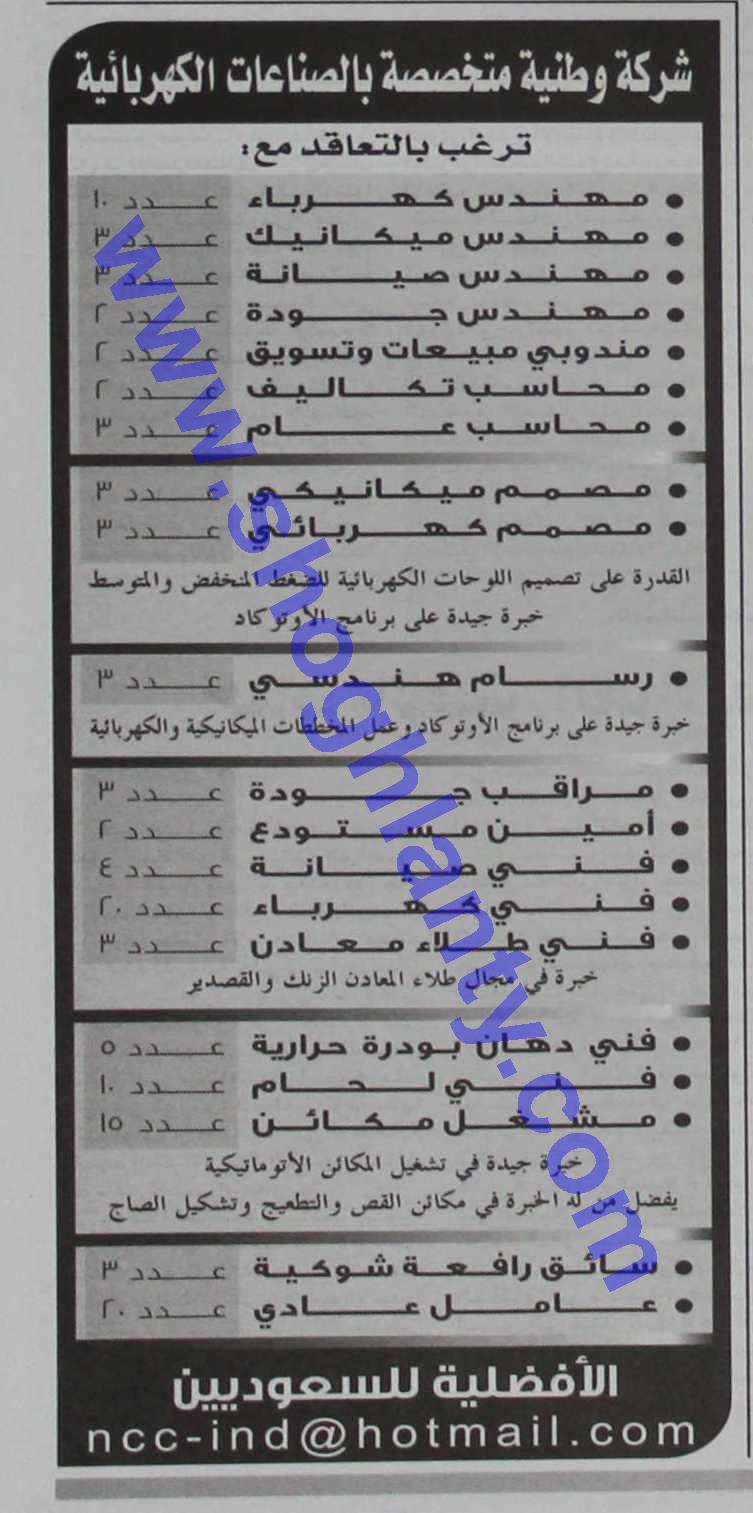 شركة وطنية متخصصة بالصناعات الكهربائية
ترغب بالتعاقد مع:
• مهندس كهرباء عدد ١٠
• مهندس ميكانيك عدد ٣
• مهندس صيانة عدد ٣
• مهندس جودة عدد ٢
• مندوبي مبيعات وتسويق عدد ٢
• محاسب تكاليف عدد ٢
• محاسب عام عدد ٣
• مصمم ميكانيكي عدد ٣
• مصمم كهربائي عدد ٣
القدرة على تصميم اللوحات الكهربائية للضغط المنخفض والمتوسط
خبرة جيدة على برنامج الأوتوكاد
• رسام هندسي عدد ٣
خبرة جيدة على برنامج الأوتوكاد وعمل المخططات الميكانيكية والكهربائية
• مراقب جودة عدد ٣
• أمين مستودع عدد ٢
• فني صيانة عدد ٤
• فني كهرباء عدد ٢٠
• فني طلاء معادن عدد ٣
خبرة في مجال طلاء المعادن الزنك والقصدير
• فني دهان بودرة حرارية عدد ٥
• فني لحام عدد ١٠
• مشغل مكائن عدد ١٥
خبرة جيدة في تشغيل المكائن الأتوماتيكية
يفضل من له الخبرة في مكائن القص والتطعيج وتشكيل الصاج
• سائق رافعة شوكية عدد ٣
• عامل عادي عدد ٢٠
الأفضلية للسعوديين
ncc-ind@hotmail.com
www.shoghlanty.com